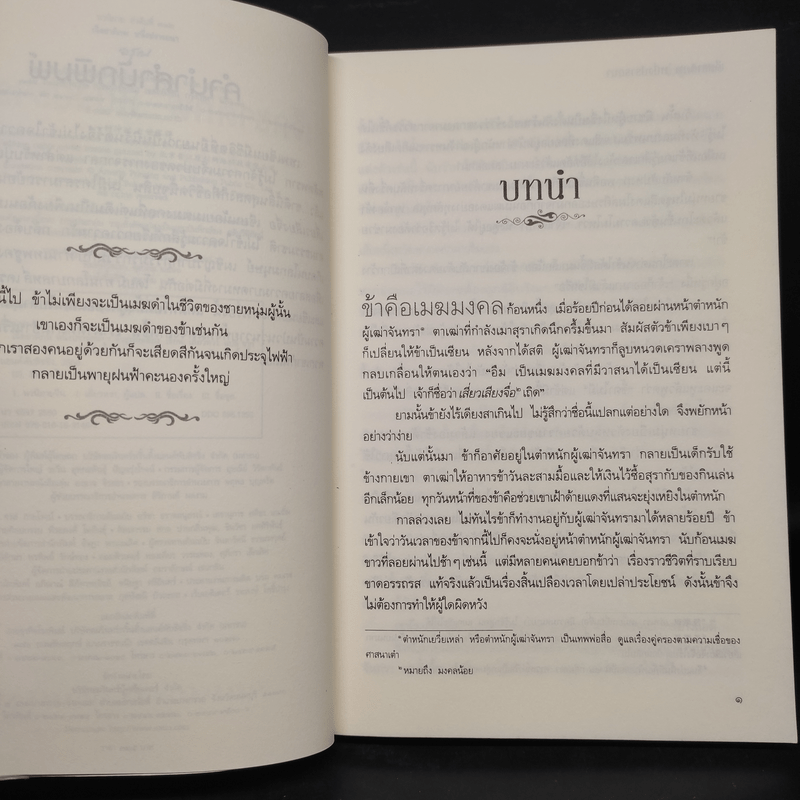 นี้ไป ข้าไม่เพียงจะเป็นเมฆดำในชีวิตของชายหนุ่มผู้นั้น
เขาเองก็จะเป็นเมฆดำของข้าเช่นกัน
กเราสองคนอยู่ด้วยกันก็จะเสียดสีกันจนเกิดประจุไฟฟ้า
กลายเป็นพายุฝนฟ้าคะนองครั้งใหญ่
บทนำ
ข้าคือเมฆมงคลก้อนหนึ่ง เมื่อร้อยปีก่อนได้ลอยผ่านหน้าตำหนัก
ผู้เฒ่าจันทรา๑ ตาเฒ่าที่กำลังเมาสุราเกิดนึกครึ้มขึ้นมา สัมผัสตัวข้าเพียงเบาๆ
ก็เปลี่ยนให้ข้าเป็นเซียน หลังจากได้สติ ผู้เฒ่าจันทราก็ลูบหนวดเคราพลางพูด
กลบเกลื่อนให้ตนเองว่า “อืม เป็นเมฆมงคลที่มีวาสนาได้เป็นเซียน แต่นี้
เป็นต้นไป เจ้าก็ชื่อว่าเสี่ยวเสียงจื่อ๒เถิด”
ยามนั้นข้ายังไร้เดียงสาเกินไป ไม่รู้สึกว่าชื่อนี้แปลกแต่อย่างใด จึงพยักหน้า
อย่างว่าง่าย
นับแต่นั้นมา ข้าก็อาศัยอยู่ในตำหนักผู้เฒ่าจันทรา กลายเป็นเด็กรับใช้
ข้างกายเขา ตาเฒ่าให้อาหารข้าวันละสามมื้อและให้เงินไว้ซื้อสุรากับของกินเล่น
อีกเล็กน้อย ทุกวันหน้าที่ของข้าคือช่วยเขาเฝ้าด้ายแดงที่แสนจะยุ่งเหยิงในตำหนัก
กาลล่วงเลย ไม่ทันไรข้าก็ทำงานอยู่กับผู้เฒ่าจันทรามาได้หลายร้อยปี ข้า
เข้าใจว่าวันเวลาของข้าจากนี้ไปก็คงจะนั่งอยู่หน้าตำหนักผู้เฒ่าจันทรา นับก้อนเมฆ
ขาวที่ลอยผ่านไปช้าๆ เช่นนี้ แต่มีหลายคนเคยบอกข้าว่า เรื่องราวชีวิตที่ราบเรียบ
ขาดอรรถรส แท้จริงแล้วเป็นเรื่องสิ้นเปลืองเวลาโดยเปล่าประโยชน์ ดังนั้นข้าจึง
ไม่ต้องการทำให้ผู้ใดผิดหวัง
๑ตำหนักเยวี่ยเหล่า หรือตำหนักผู้เฒ่าจันทรา เป็นเทพพ่อสื่อ ดูแลเรื่องคู่ครองตามความเชื่อของ
ศาสนาเต๋า
๒หมายถึง มงคลน้อย
๑